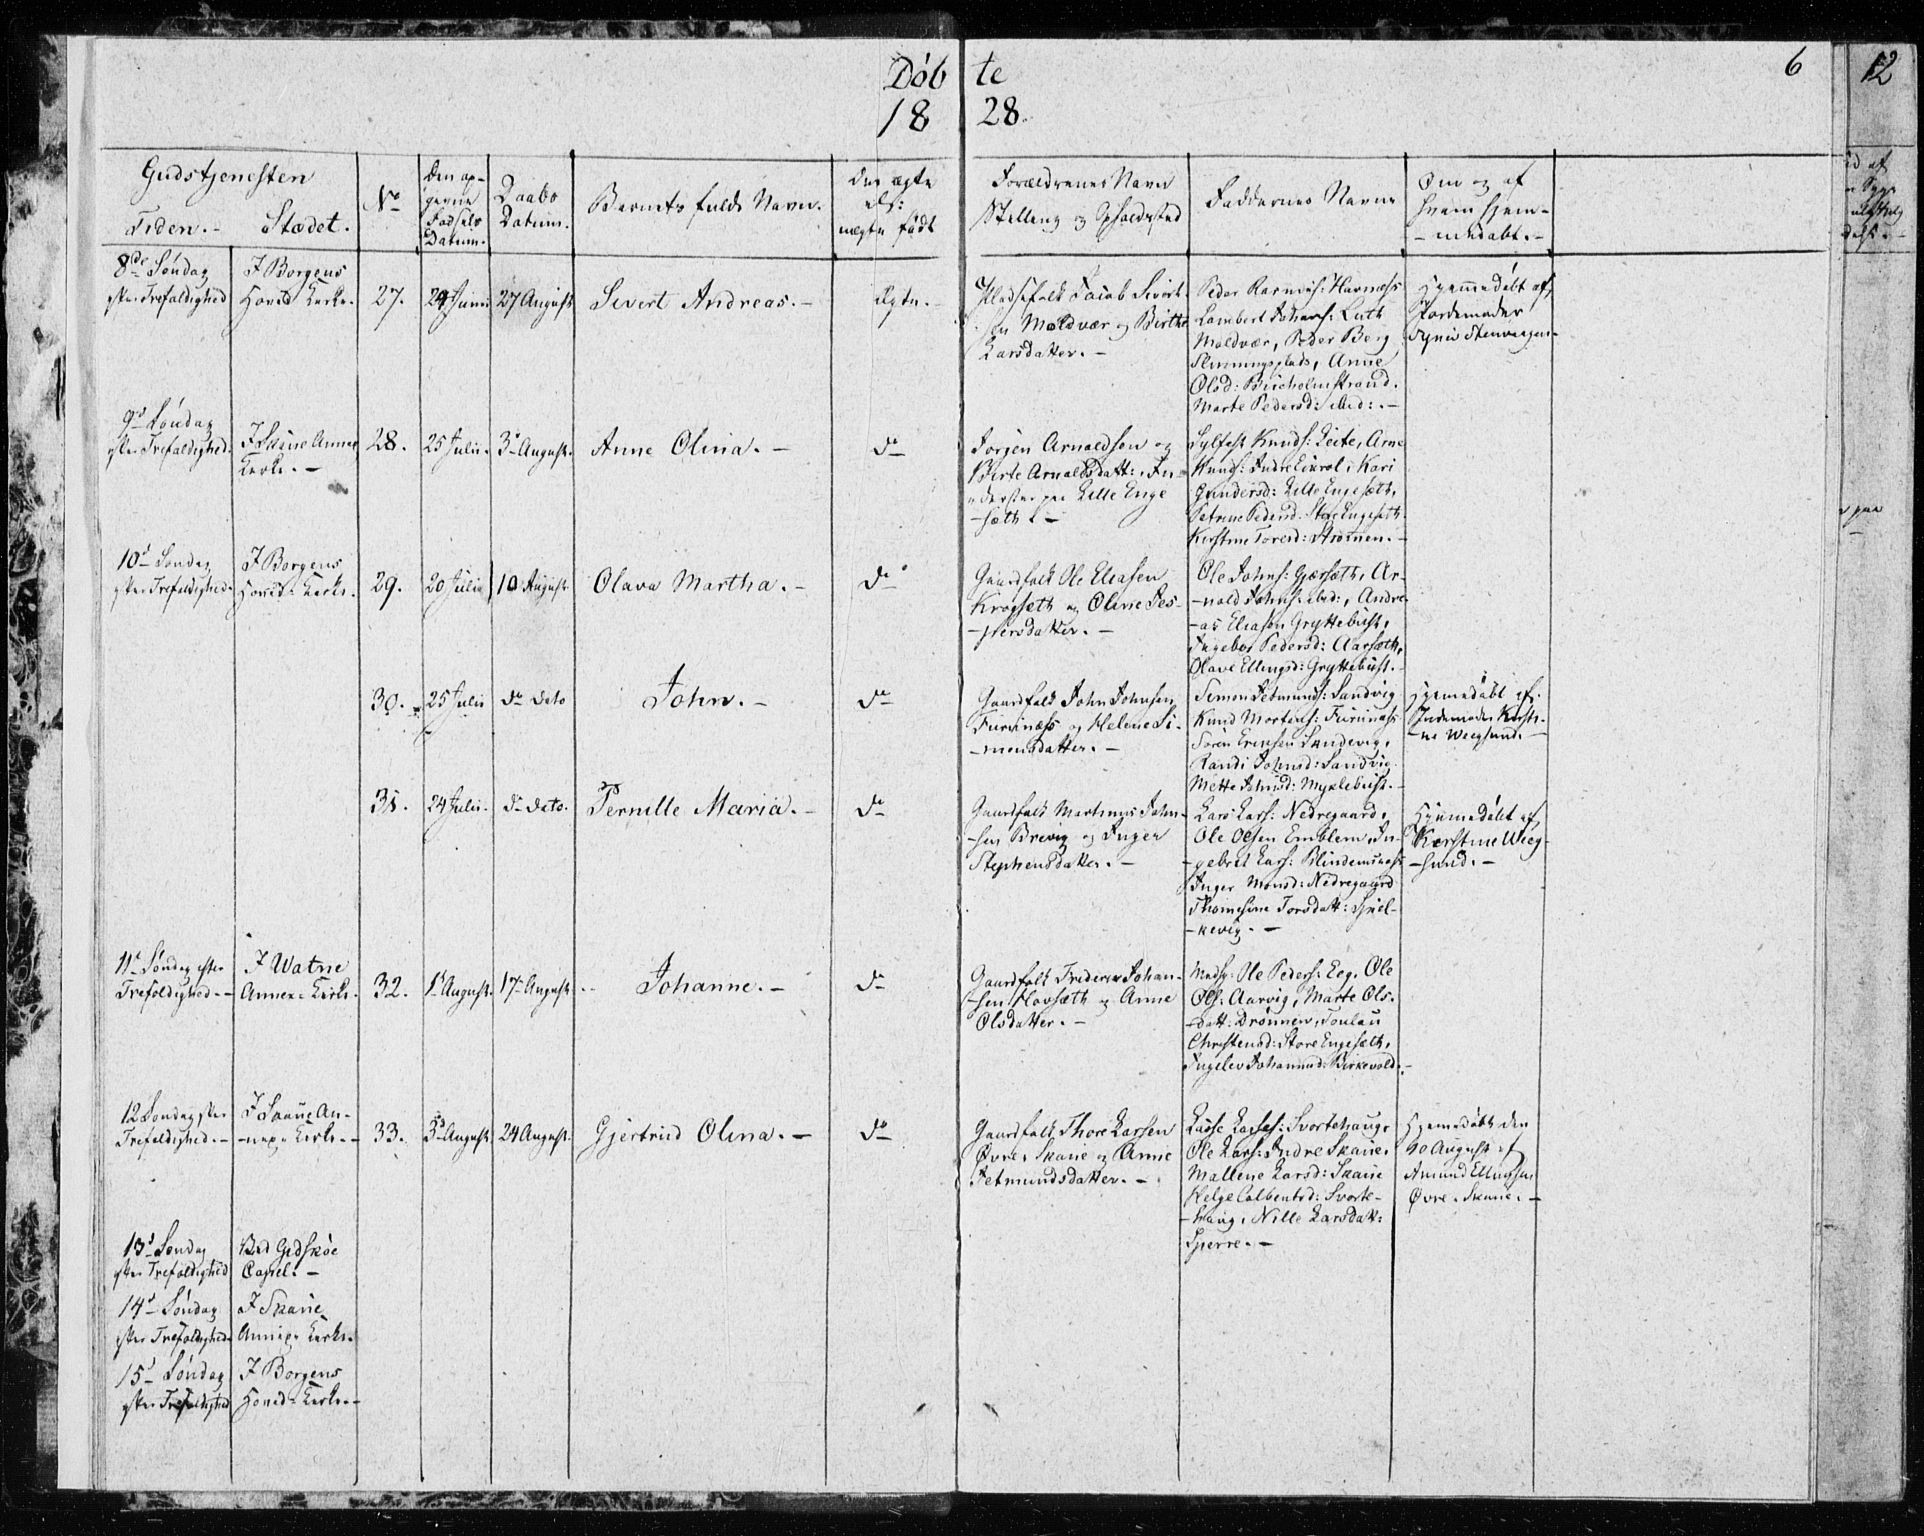 Døb te
6
12
18 28.
Gudstjenesten
Tiden. - Stædet.
No
Den op-
givne
Fødsels
Datum.
Daabs
Datum.
Barnets fulde Navn.
Om ægte
els:
uægte født
Forældrenes Navn
Stilling og Opholdsted
Faddernes Navne
Om og af
hvem hjem-
-medøbt.-
8de Søndag
efter Trefoldighed
I Borgens
Hoved Kirke.
27.
27 August
Sivert Andreas. -
Ægte. -
Pladsefolk Jacob Sivert-
sen Moldvær og Birthe
Larsdatter. -
Peder Rasmus: Havnæss
Lambert Johans:
Moldvær, Peder Berg
Anne
Olsd:
Marte Pedersd: ibid: -
Hjemmedøbt af
Jordemoder
9d Søndag
efter Trefoldighed.
I Skaue Annex
Kirke. -
28.
25 Julii.
3d August.
Anne Olina. -
do
Jørgen Arnoldsen og
Birte Arnoldsdatt: In-
derster paa Lille Enge
-sæth. -
Sylfest Knuds: Leite, Arne
Knuds: Indre Kari
Gundersd: Lille Engesæth,
Petrine Pedersd: Store Engeseth
Kirstine Toresd: Drømen. -
10d Søndag
efter Trefoldighed.
I Borgens
Hoved-Kirke.
29.
20 Julii
10 August
Olava Martha. -
do
Gaardfolk Ole Eliasen
Krogsæth og Oline Jes-
-persdatter. -
Ole Johns: Gjærsæth, Ar-
-nold Johns: ibid:, Andre-
-as Eliasen Gryttebust,
Ingebor Pedersd: Aarsæth,
Olave Ellingsd: Gryttebust. -
30.
25 Julii
do dato
John. -
do
Gaardfolk John Johnsen
Furunæss og Helene Si-
-monsdatter. -
Simon Jetmunds: Sandvig
Knud Mortens: Furunæss
Søren Ericksen Sandvig,
Randi Johnsd: Sandvig
Mette Johnsd: Myklebust. -
Hjemmedøbt af
Jordemoder Kirsti-
-ne Weegsund. -
31.
24 Julii.
do dato.
Pernille Maria. -
do
Gaardfolk Martinus John-
-sen Brevig og Inger
Stephensdatter. -
Lars Lars: Nedregaard,
Ole Olsen Emblem, In-
-gebrit Lars: Blindemsnæss
Inger Monsd: Nedregaard
Thomesine Torsdatt: Spiel-
-kevig. -
Hjemmedøbt af
Kirstine Weeg-
-sund. -
11d Søndag efter
Trefoldighed. -
I Watne
Annex-Kirke.
32.
1d August.
17d August
Johanne. -
do
Gaardfolk Frederik Johan-
-sen Hovsæth og Anne
Olsdatter. -
Ole Peders: Eeg, Ole
Ols: Aarvig, Marte Ols-
-datt: Drønnen,
Christensd: Store Engesæth,
Ingelev Johannesd: Birkevold. -
12 Søndag efter
Trefoldighed. -
I Skaue An-
-nex-Kirke. -
33.
3d August
24 August.
Gjertrud Olina. -
do
Gaardfolk Thore Larsen
Øvre-Skaue og Anne
Jetmundsdatter. -
Lasse Lasses: Svortehaug,
Ole Lars: Indre Skaue,
Mallene Larsd: Skaue
Helge Svorte-
-haug, Nille Larsdatt:
Sperre. -
Hjemmedøbt den
10 August af
Amund Ellingsen
Øvre-Skaue. -
13d Søndag
efter Trefoldighed
Ved Gidskøe
Capel. -
14d Søndag
efter Trefoldighed.
I Skaue
Annex-Kirke.
15d Søndag
efter Trefoldighed
I Borgens
Hoved-Kirke. -